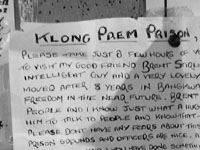 KLONG PAEM PRISON,
PLEASE TAKE JUST A FEW HOURS OF Y
TO VISIT MY GOOD FRIEND BRENT
INTELLIGENT GUY AND A VERY LOVELY
MOVED AFTER 8 YEARS IN BANGKWA
FREEDOM IN THE NEAR FUTURE. BRENT
PEOPLE AND I KNOW JUST WHAT A HUG
HIM TO TALK TO PEOPLE AND KNOW THAT
PLEASE DONT HAVE ANY FEARS ABOUT THE
PRISON GROUNDS AND OFFICERS ARE NICE.
YOU HAVE DONE SOMETHIN